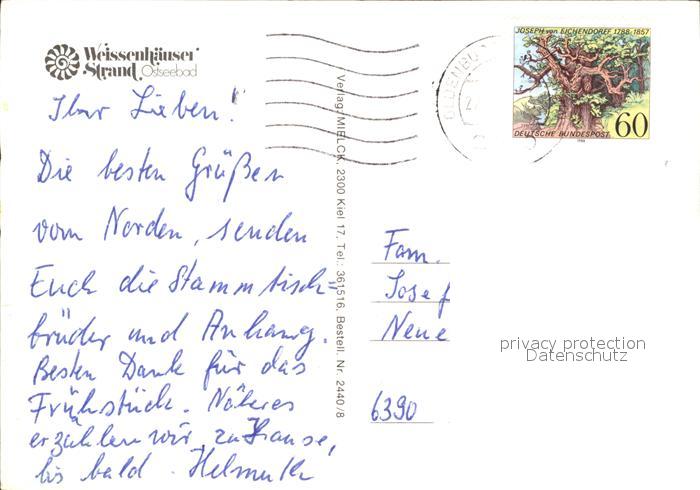 Weissenhäuser
Strand Ostseebad
JOSEPH von EICHENDORFF 1788-1857
DEUTSCHE BUNDESPOST
60
1988
Ihr Lieben!
Die besten Grüßen
vom Norden, senden
Euch die Stammtisch=
brüder und Anhang.
Besten Dank für das
Frühstück. Näheres
erzählen wir zu Hause,
bis bald. Helmuth
Verlag MIELCK, 2300 Kiel 17, Tel.: 361516, Bestell. Nr. 2440/8
Fam.
Josef
Neue
6390
privacy protection
Datenschutz